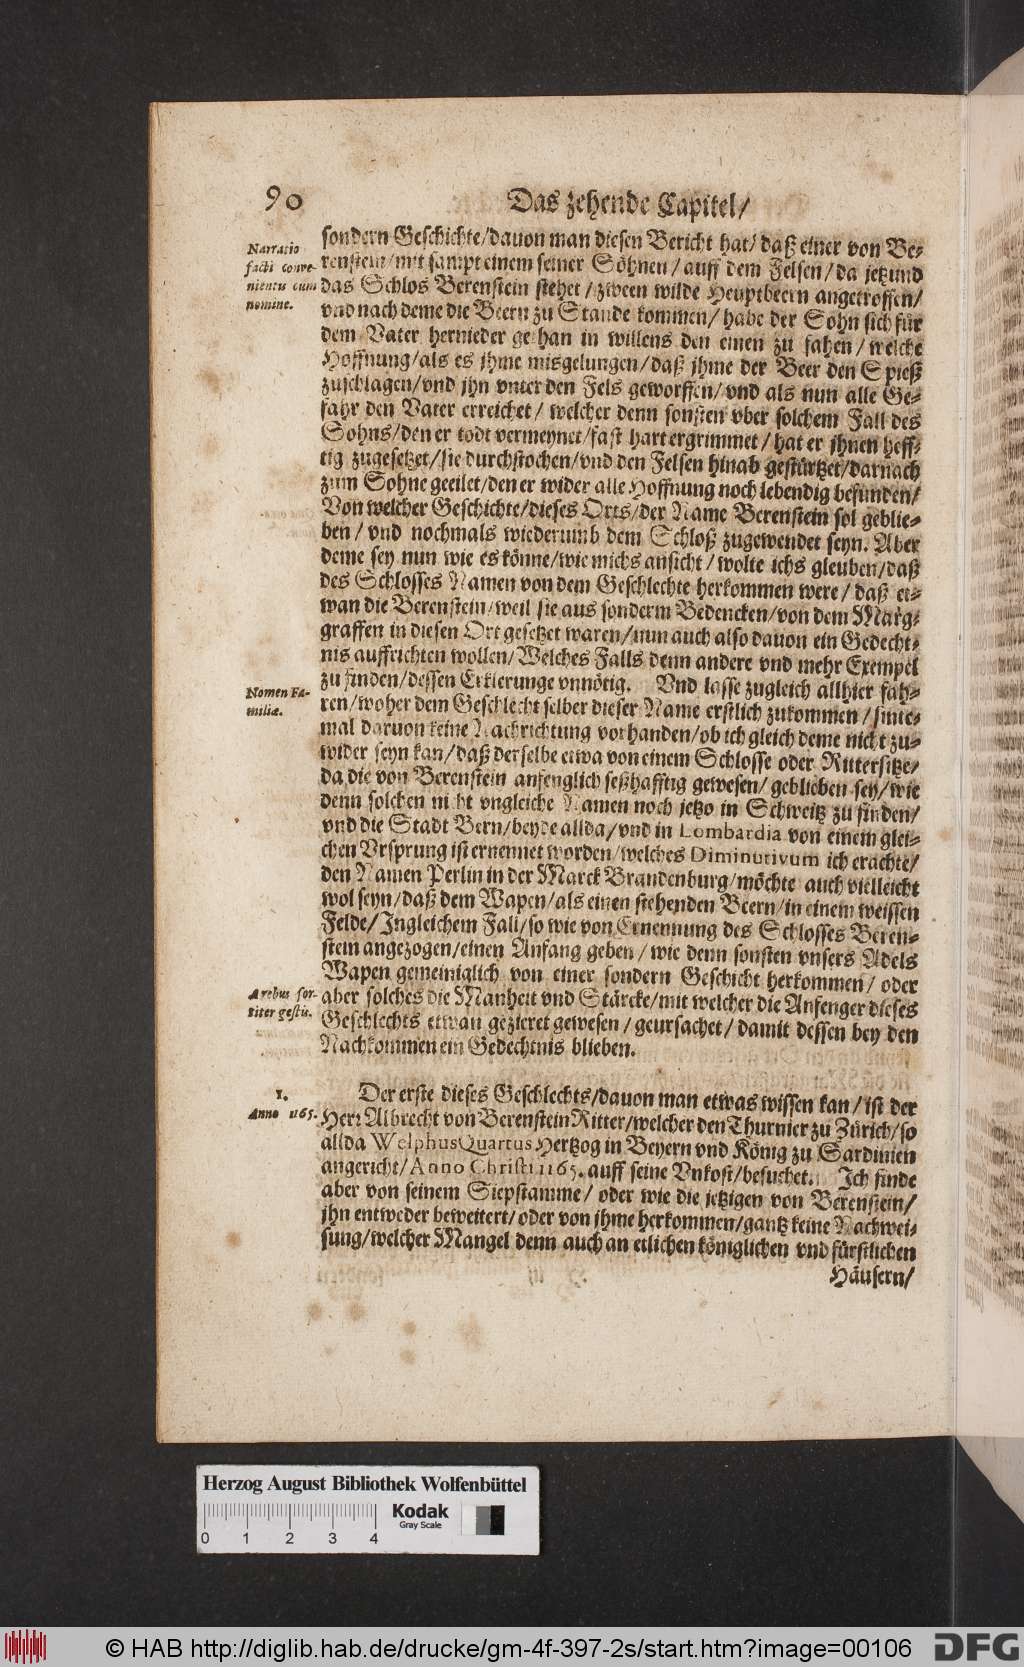 90
Das zehende Capitel/
Narratio
facti conve-
nientis cum
nomine.
sondern Geschichte/dauon man diesen Bericht hat/ daß einer von Be-
renstein/mit sampt einem seiner Söhnen/ auff dem Felsen/ da jetzund
das Schlos Berenstein stehet/zween wilde Heuptbeern angetroffen/
vnd nach deme die Beern zu Stande kommen/ habe der Sohn sich für
dem Vater hernieder gethan in willens den einen zu fahen/ welche
Hoffnung/als es jhme misgelungen/daß jhme der Beer den Spieß
zuschlagen/vnd jhn vnter den Fels geworffen/vnd als nun alle Ge-
fahr den Vater erreichet/ welcher denn sonsten vber solchem Fall des
Sohns/den er todt vermeynet/fast hart ergrimmet/ hat er jhnen heff-
tig zugesetzet/sie durchstochen/vnd den Felsen hinab gestürtzet/darnach
zum Sohne geeilet/den er wider alle Hoffnung noch lebendig befunden/
Von welcher Geschichte/dieses Orts/der Name Berenstein sol geblie-
ben/ vnd nochmals wiederumb dem Schloß zugewendet seyn. Aber
deme sey nun wie es könne/wie michs ansicht/wolte ichs gleuben/daß
des Schlosses Namen von dem Geschlechte herkommen were/ daß et-
wan die Berenstein/weil sie aus sonderm Bedencken/von dem Marg-
graffen in diesen Ort gesetzet waren/nun auch also dauon ein Gedecht-
nis auffrichten wollen/Welches Falls denn andere vnd mehr Exempel
zu finden/dessen Erklerunge vnnötig. Vnd lasse zugleich allhier fah-
Nomen Fa-
miliæ.
ren/woher dem Geschlecht selber dieser Name erstlich zukommen/ sinte-
mal daruon keine Nachrichtung vorhanden/ob ich gleich deme nicht zu-
wider seyn kan/daß derselbe etwa von einem Schlosse oder Rittersitze/
da die von Berenstein anfenglich seßhafftig gewesen/ geblieben sey/wie
denn solchen nicht vngleiche Namen noch jetzo in Schweitz zu finden/
vnd die Stadt Bern/beyde allda/vnd in Lombardia von einem glei-
chen Vrsprung ist ernennet worden/welches Diminutivum ich erachte/
den Namen Perlin in der Marck Brandenburg/möchte auch vielleicht
wol seyn/daß dem Wapen/als einen stehenden Beern/in einem weissen
Felde/Ingleichem Fall/so wie von Ernennung des Schlosses Beren-
stein angezogen/einen Anfang geben/ wie denn sonsten vnsers Adels
Wapen gemeiniglich von einer sondern Geschicht herkommen/ oder
A rebus for-
titer gestis.
aber solches die Manheit vnd Stärcke/mit welcher die Anfenger dieses
Geschlechts etwan gezieret gewesen/geursachet/damit dessen bey den
Nachkommen ein Gedechtnis blieben.
1.
Anno 1165.
Der erste dieses Geschlechts/dauon man etwas wissen kan/ ist der
Herr Albrecht von Berenstein Ritter/welcher den Thurnier zu Zürich/so
allda Welphus Quartus Hertzog in Beyern vnd König zu Sardinien
angericht/Anno Christi 1165. auff seine Vnkost/besuchet. Ich finde
aber von seinem Siepstamme/ oder wie die jetzigen von Berenstein/
jhn entweder beweitert/oder von jhme herkommen/gantz keine Nachwei-
sung/welcher Mangel denn auch an etlichen königlichen vnd fürstlichen
Häusern/
Herzog August Bibliothek Wolfenbüttel
Kodak
Gray Scale
0 1 2 3 4
© HAB http://diglib.hab.de/drucke/gm-4f-397-2s/start.htm?image=00106
DFG